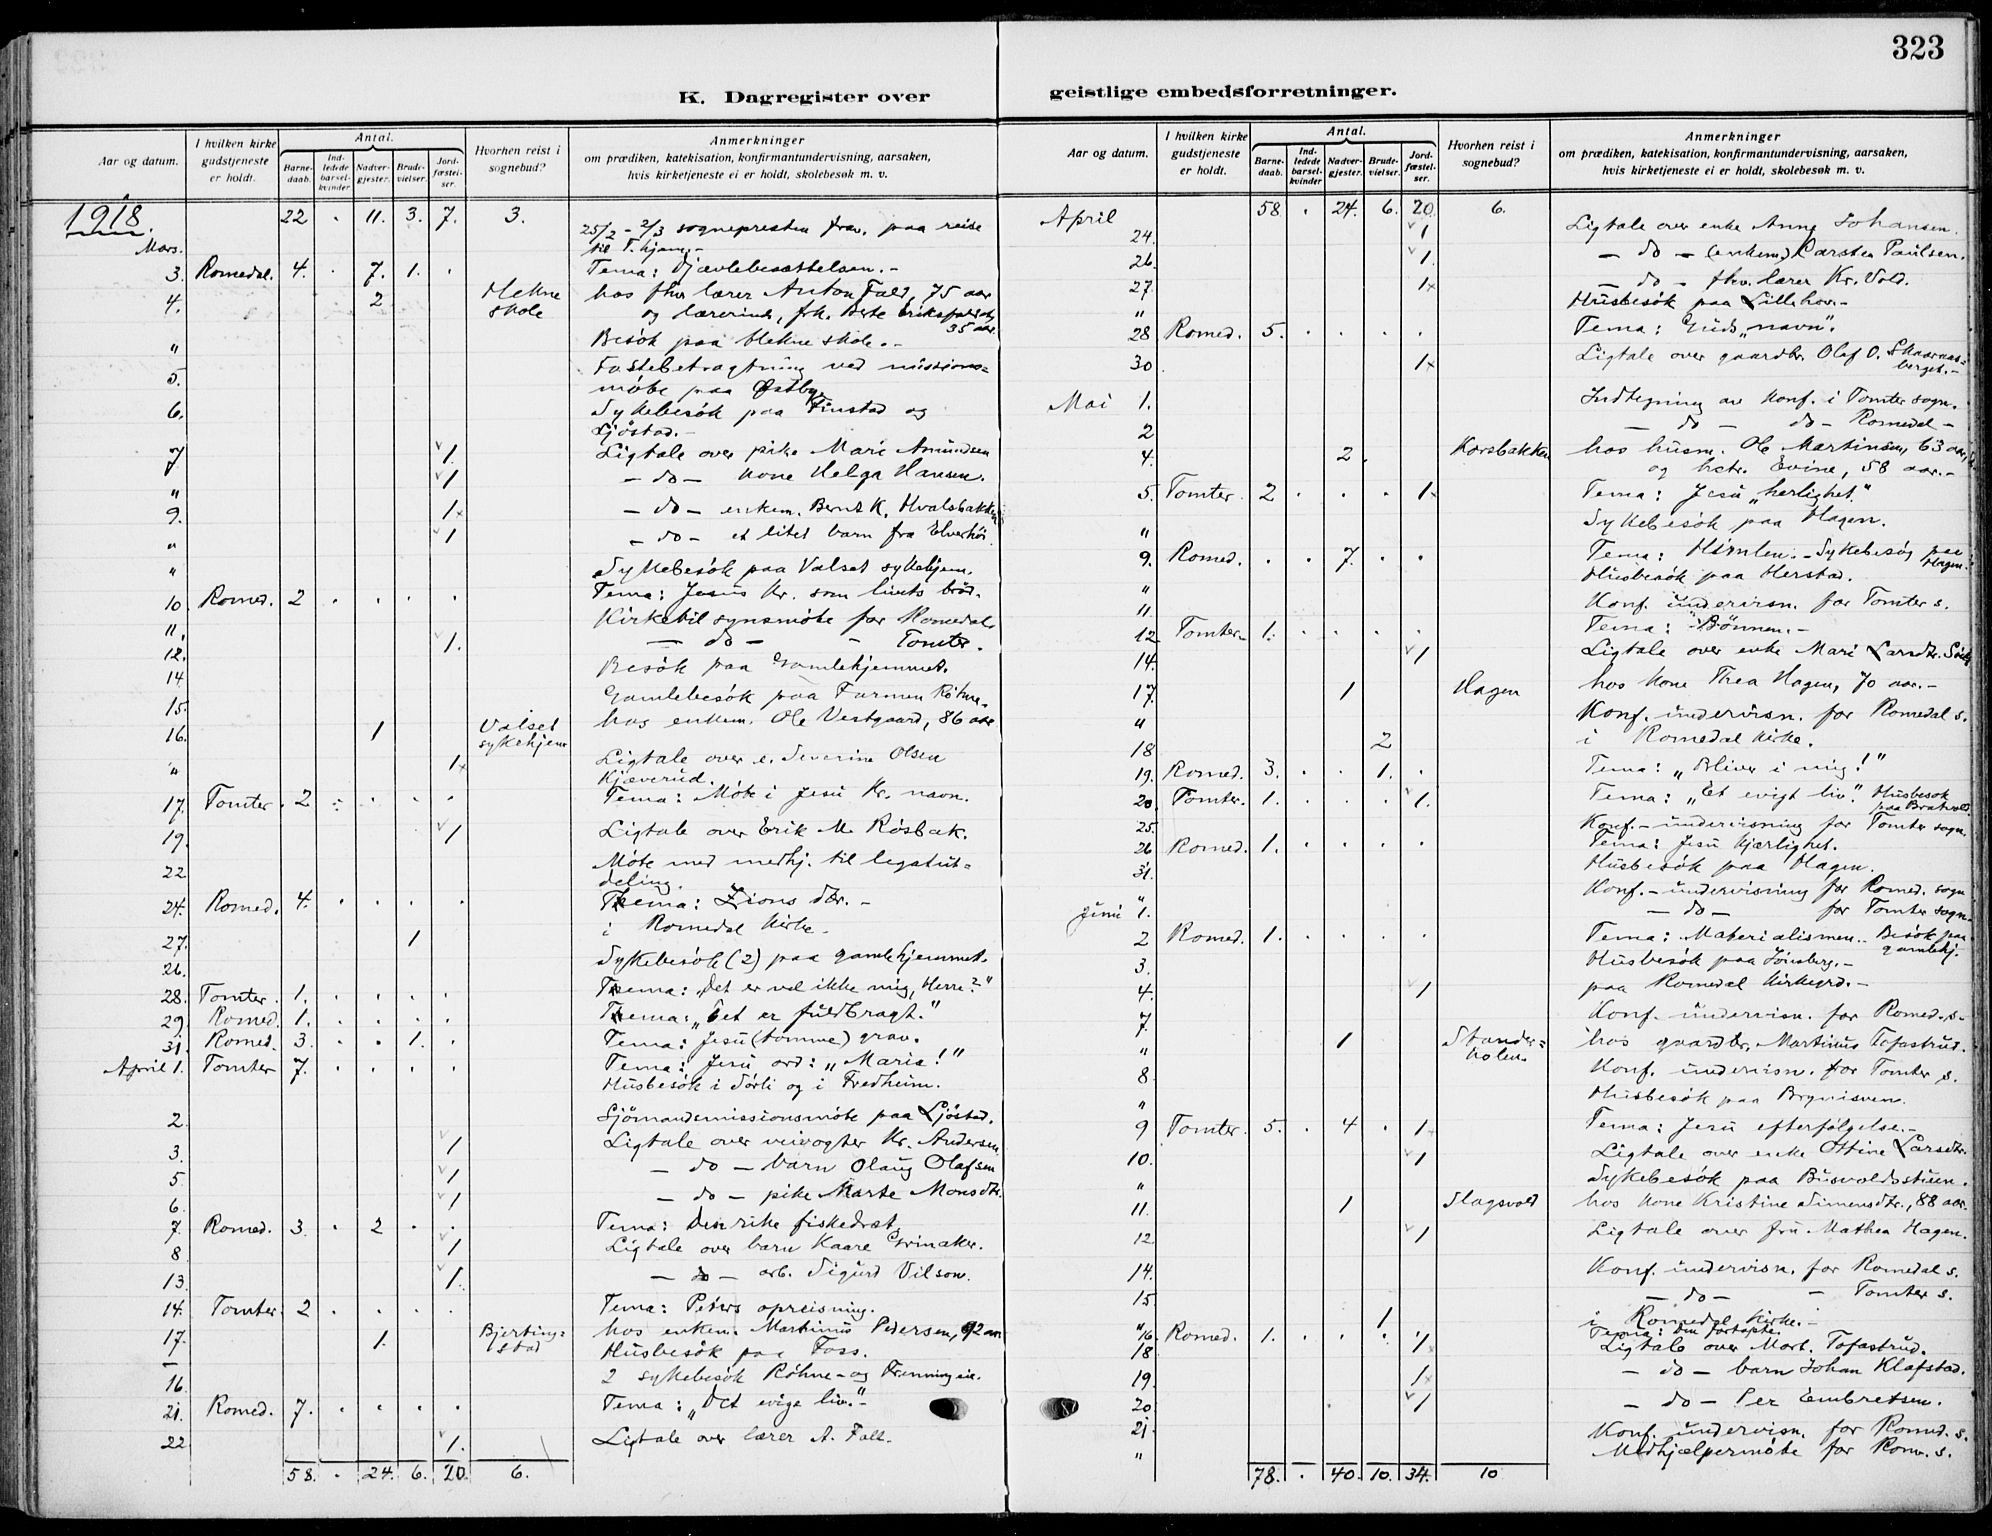 323
K. Dagregister over
geistlige embedsforretninger.
Aar og datum.
I hvilken kirke gudstjeneste er holdt.
Antal.
Barne-daab.
Ind-ledede barsel-kvinder
Nadver-gjester.
Brude-vielser.
Jord-fæstel-ser.
Hvorhen reist i sognebud?
Anmerkninger
om prædiken, katekisation, konfirmantundervisning, aarsaken,
hvis kirketjeneste ei er holdt, skolebesøk m. v.
1918. 22 . 11. 3. 7. 3. 25/2 - 2/3 sognepresten frav. paa reise
Mars. til T.hjem.-
3. Romedal. 4. . 7. 1. . Tema: Djævlebesættelsen.-
4. 2 Hekne hos fhv. lærer Anton Falk, 75 aar
skole og lærerinde, frk. Berte
35 aar.
" Besök paa Hekne skole.-
5. Fastebetragtning ved missions=
möte paa Østby.
6. Sykebesök paa Finstad og
Ljöstad.-
7 1. Ligtale over pike Mari Amundsen
" 1 - do - kone Helga Hansen.
9. 1x - do - enkem. Bernt K. Hvalsbakken
" 1 - do - et litet barn fra Elverhöi.
" Sykebesök paa Valset sykehjem.
10. Romed. 2 . . . . Tema: Jesus Kr. som livets bröd.
11. Kirketilsynsmöte for Romedal.
12. 1. - do - - Tomter.
14 Besök paa Gamlehjemmet.
15. Gamlebesök paa Farmen Röhne-
16. 1 Valset hos enkem. Ole Vestgaard, 86 aar
sykehjem
" 1x Ligtale over e. Severine Olsen
Kjæverud.
17. Tomter. 2 . . . . Tema: Möte i Jesu Kr. navn.
19. 1 Ligtale over Erik M. Rösbak.
22 Möte med medhj. til legatut=
deling.
24. Romed. 4. . . . . Tema: Zions dtr.-
27. 1 i Romedal kirke.
26. Sykebesök (2) paa gamlehjemmet.
28. Tomter. 1. . . . . Tema: Det er vel ikke mig, Herre?"
29. Romed. 1. . . . . Tema: "Det er fuldbragt."
31. Romed. 3. . . 1. . Tema: Jesu (tomme) grav.
April 1. Tomter 7. . . . . Tema: Jesu ord: "Maria!"
Husbesök i Sörli og i Fredheim.
2. Sjömandsmissionsmöte paa Ljöstad.
3. 1 Ligtale over veivogter Kr. Andersen.
5 1 - do - barn Olaug Olafsen
6. 1 - do - pike Marte Monsdtr.
7. Romed. 3. . 2 . . Tema: Den rike fiskedræt.
8 1 Ligtale over barn Kaare Grinaker.
13. 1. - do - arb. Sigurd Vilson.
14. Tomter. 2 . . . . Tema: Peters opreisning.
17. 1. Bjerting= hos enkem. Martinus Pedersen, 92 aar
stad
- Husbesök paa Foss.
16. 2 sykebesök Röhne- og
21. Romed. 7. . . . . Tema: "Det evige liv."-
22 1. Ligtale over lærer A. Falk.
58. . 24. 6. 20. 6.
Aar og datum.
I hvilken kirke gudstjeneste er holdt.
Antal.
Barne-daab.
Ind-ledede barsel-kvinder
Nadver-gjester.
Brude-vielser.
Jord-fæstel-ser.
Hvorhen reist i sognebud?
Anmerkninger
om prædiken, katekisation, konfirmantundervisning, aarsaken,
hvis kirketjeneste ei er holdt, skolebesøk m. v.
April 58. . 24. 6. 20. 6.
24. 1 Ligtale over enke Anne Johansen.
26. 1. - do - (enkem) Carsten Paulsen.
27 1x - do - fhv. lærer Kr. Vold.
" Husbesök paa Lillehov.-
28 Romed. 5. . . . . Tema: Guds "navn".
30 1x Ligtale over gaardbr. Olaf O. Skaarnas=
berget.-
Mai 1. Indtegning av konf. i Tomter sogn.
2 - do - do - Romedal -
4. 2. Korsbakken hos husm. Ole Martinsen, 63 aar,
og hstr. Evine, 58 aar.-
5. Tomter. 2 . . . 1x Tema: Jesu "herlighet."
" Sykebesök paa Hagen.
9. Romed. . . 7. . . Tema: Himlen.- Sykebesög paa
Hagen.
" Husbesök paa Herstad.
11. Konf. undervisn. for Tomter s.
12 Tomter- 1. . . . . Tema: Bönnen.-
14. 1 Ligtale over enke Mari Larsdtr.
17. 1 Hagen hos kone Thea Hagen, 70 aar.-
" Konf. undervisn. for Romedal s.
18 2 i Romedal kirke.
19. Romed. 3. . . 1. . Tema: "Bliver i mig!"
20 Tomter. 1. . . . 1. Tema: "Et evigt liv". Husbesök
paa Bratvold
25. Konf.-undervisning for Tomter sogn.
26 Romed. 1. . . . . Tema: Jesu kjærlighet.
31. Husbesök paa Hagen.
" Konf.-undervisning for Romed. sogn
Juni 1. - do - for Tomter sogn.
2 Romed. 1. . . . . Tema: Materialismen.. Besök paa
gamlehj.
3. Husbesök paa Jönsberg.-
4. 1 paa Romedal kirkegrd.-
7. Konf. undervisn. for Romed. s-
" 1 Stander= hos gaardbr. Martinus Tofastrud.
holen.
8 Konf. undervisn. for Tomter s.
" Husbesök paa
9 Tomter. 5. . 4 . 1 Tema: Jesu efterfölgelse.-
10. 1 Ligtale over enke Ottine Larsdtr.
" Sykebesök paa Busvoldsstuen.
11. 1 Slagsvold hos kone Kristine Simensdtr., 88 aar.
12 1 Ligtale over fru Mathea Hagen.
14. Konf. undervisn. for Romedal s.
15 - do - - Tomter s.
" 1 i Romedal kirke.-
16 Romed. 1. . . . . Tema: Den fortapte
18 1x Ligtale over Mart. Tofastrud.
19. 1x - do - barn Johan Klafstad.
20 1 - do - Per Embretsen.
21. Konf. undervisn. for Romd. s.
" Medhjælpermöte for Rom. s.
78. . 40. 10. 34. 10